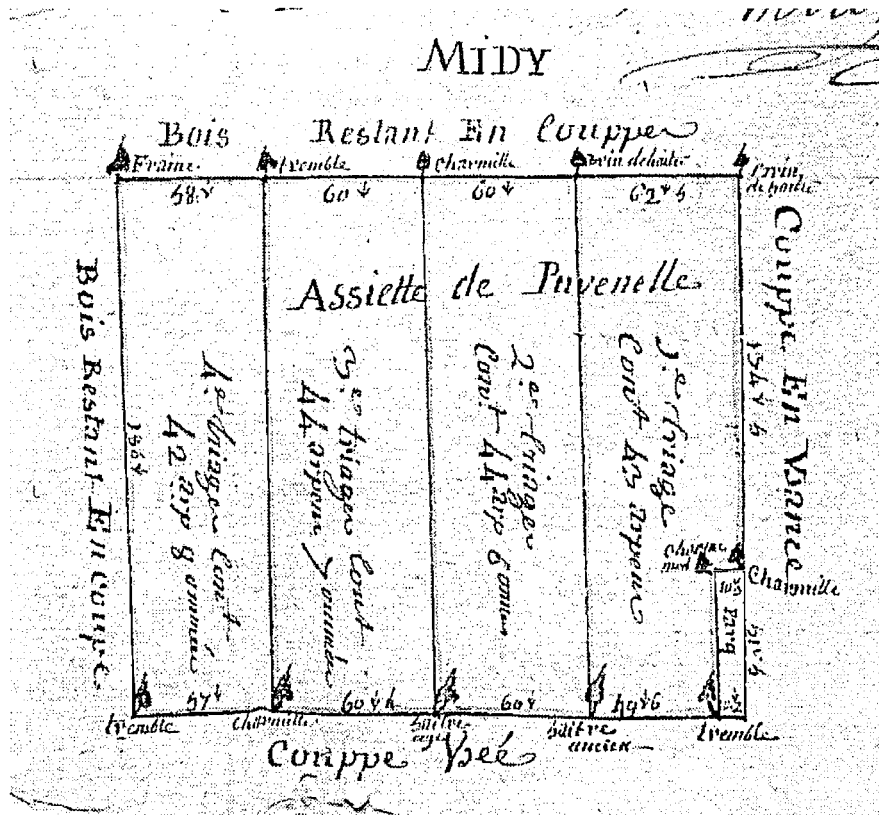 MIDY
Bois Restant En Couppe
Fraine
tremble
Charmille
brin de haitre
brin de haitre
58 v
60 v
60 v
62 v 5
Assiette de Puvenelle
Bois Restant En Coupe
Couppe En Usance
4.e triage Cont
42 arp 8 ommées
3.e triage Cont
44 arpens
2.e triage
Cont 44 arp 6 ommées
1.e triage
Cont 43 arpens
Charme
Charmille
Parq
57 v
60 v
60 v
49 v 6
tremble
Charmille
haitre
haitre
ancien
tremble
Couppe Usée